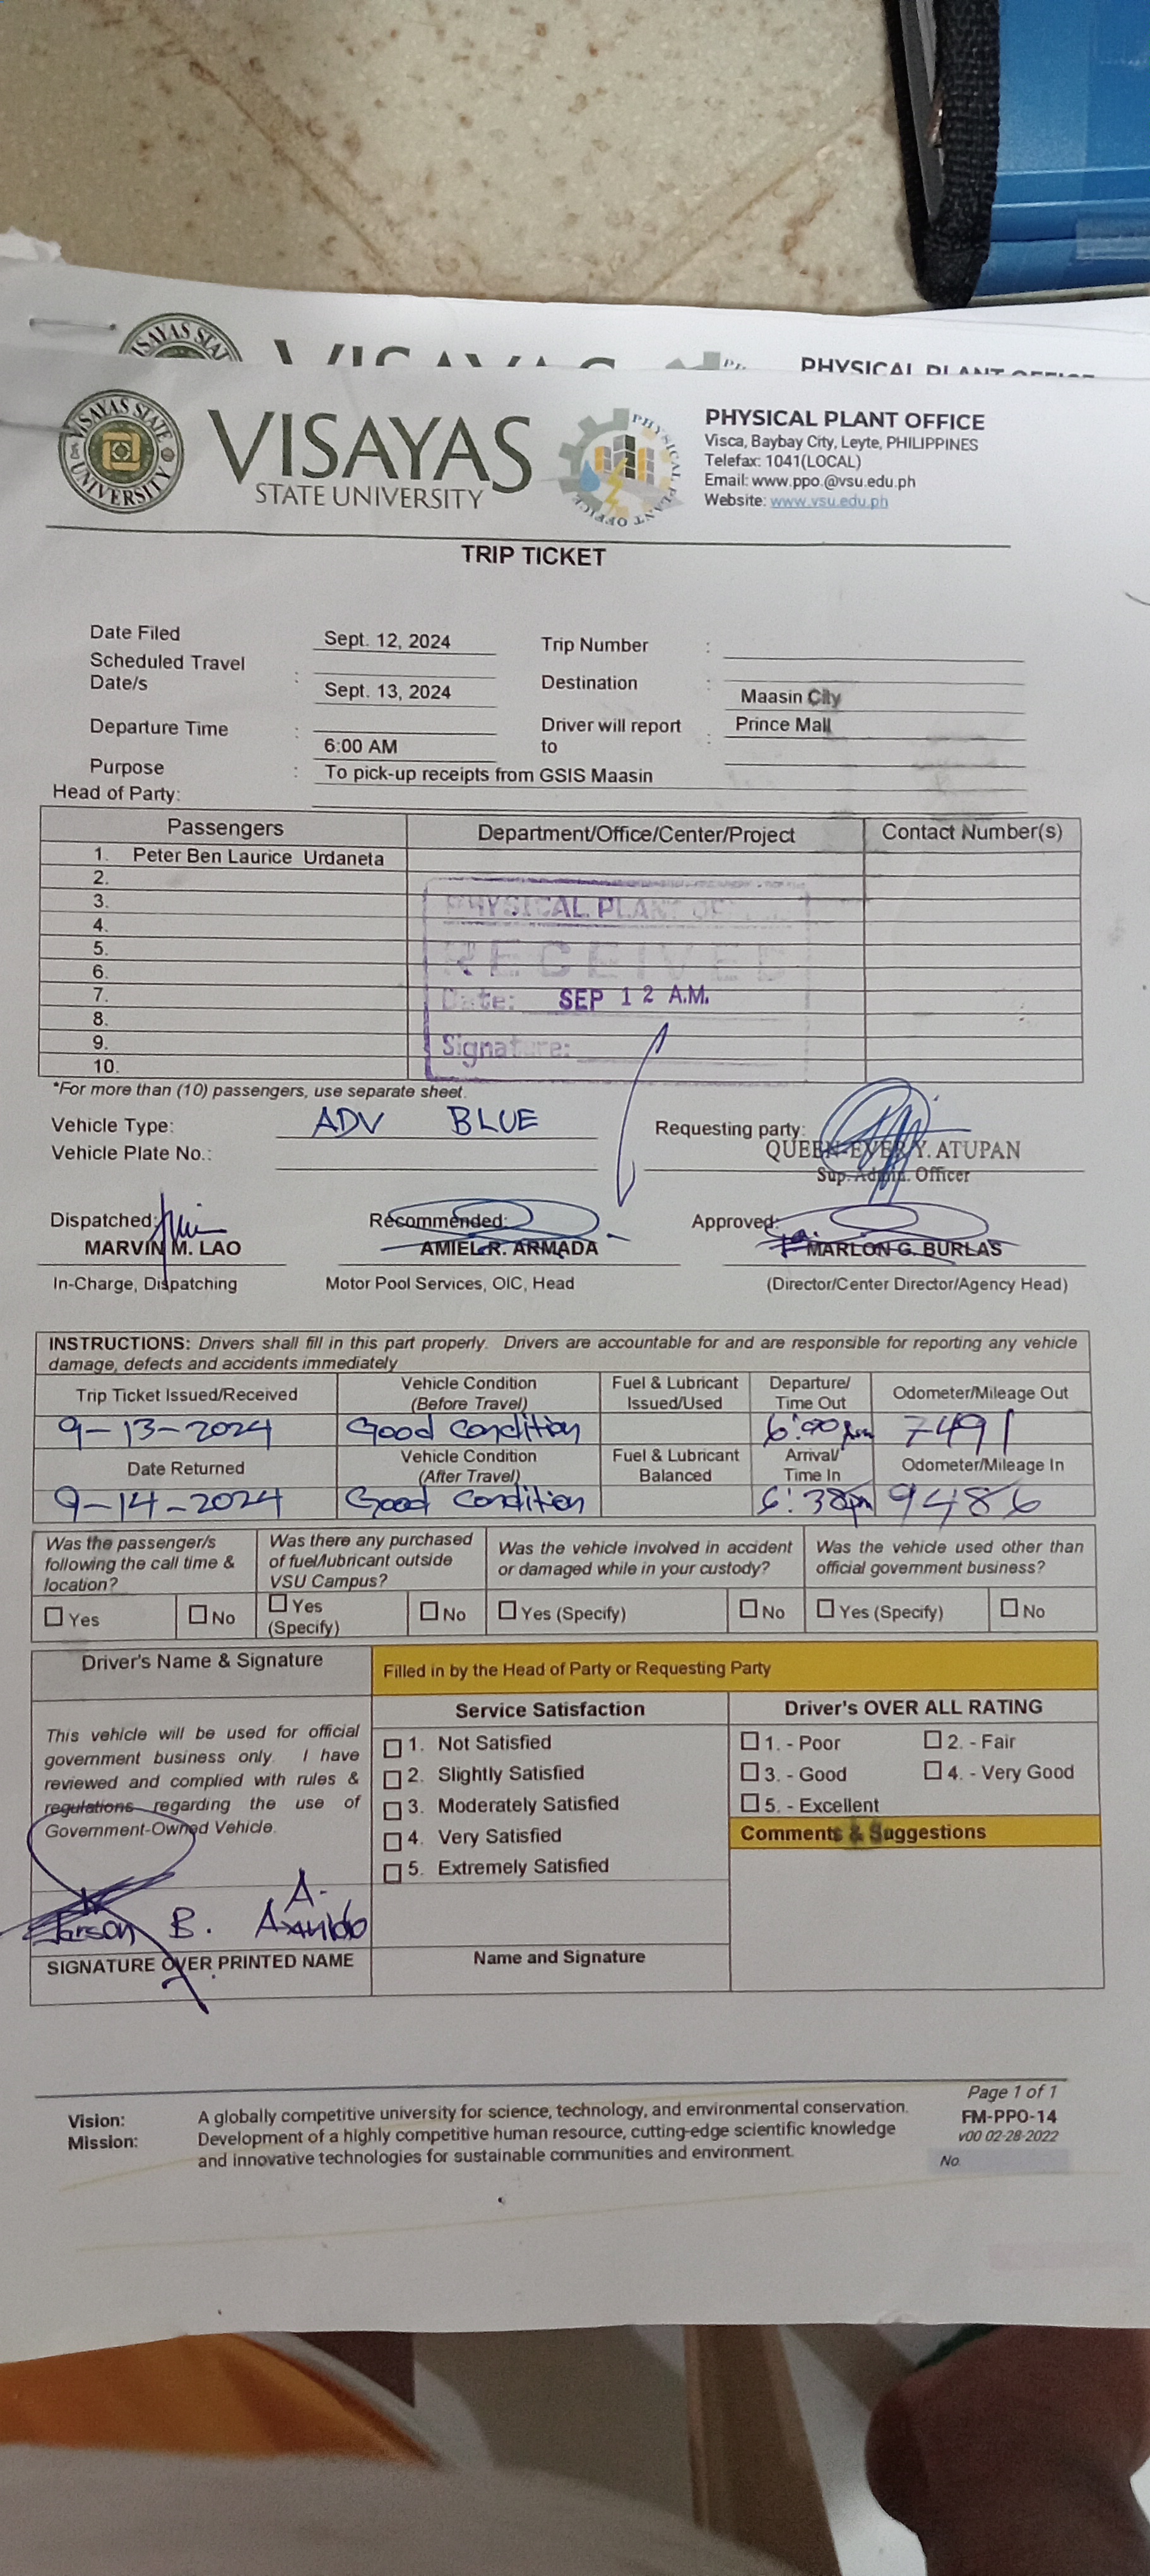 PHYSICAL PLANT OFFICE
VISAYAS STATE UNIVERSITY
VISAYAS
STATE UNIVERSITY
PHYSICAL PLANT OFFICE
PHYSICAL PLANT OFFICE
Visca, Baybay City, Leyte, PHILIPPINES
Telefax: 1041(LOCAL)
Email: www.ppo.@vsu.edu.ph
Website: www.vsu.edu.ph
TRIP TICKET
Date Filed Sept. 12, 2024 Trip Number :
Scheduled Travel Date/s : Sept. 13, 2024 Destination : Maasin City
Departure Time : 6:00 AM Driver will report to : Prince Mall
Purpose : To pick-up receipts from GSIS Maasin
Head of Party:
Passengers Department/Office/Center/Project Contact Number(s)
1. Peter Ben Laurice Urdaneta
2.
3.
4.
5.
6.
7.
8.
9.
10.
PHYSICAL PLANT
RECEIVED
Date: SEP 12 A.M.
Signature:
*For more than (10) passengers, use separate sheet.
Vehicle Type: ADV BLUE
Vehicle Plate No.:
Requesting party:
QUEEN-EVER Y. ATUPAN
Sup. Admn. Officer
Dispatched: Recommended: Approved:
MARVIN M. LAO AMIEL R. ARMADA MARLON G. BURLAS
In-Charge, Dispatching Motor Pool Services, OIC, Head (Director/Center Director/Agency Head)
INSTRUCTIONS: Drivers shall fill in this part properly. Drivers are accountable for and are responsible for reporting any vehicle
damage, defects and accidents immediately
Trip Ticket Issued/Received Vehicle Condition (Before Travel) Fuel & Lubricant Issued/Used Departure/ Time Out Odometer/Mileage Out
9-13-2024 Good condition 6:00 7491
Date Returned Vehicle Condition (After Travel) Fuel & Lubricant Balanced Arrival/ Time In Odometer/Mileage In
9-14-2024 Good condition 6:38pm 9486
Was the passenger/s following the call time & location? Was there any purchased of fuel/lubricant outside VSU Campus? Was the vehicle involved in accident or damaged while in your custody? Was the vehicle used other than official government business?
Yes No Yes (Specify) No Yes (Specify) No Yes (Specify) No
Driver's Name & Signature
Filled in by the Head of Party or Requesting Party
This vehicle will be used for official
government business only. I have
reviewed and complied with rules &
regulations regarding the use of
Government-Owned Vehicle.
B. A.
SIGNATURE OVER PRINTED NAME
Service Satisfaction
1. Not Satisfied
2. Slightly Satisfied
3. Moderately Satisfied
4. Very Satisfied
5. Extremely Satisfied
Name and Signature
Driver's OVER ALL RATING
1. - Poor 2. - Fair
3. - Good 4. - Very Good
5. - Excellent
Comments & Suggestions
Vision: A globally competitive university for science, technology, and environmental conservation.
Mission: Development of a highly competitive human resource, cutting-edge scientific knowledge
and innovative technologies for sustainable communities and environment.
Page 1 of 1
FM-PPO-14
v00 02-28-2022
No.